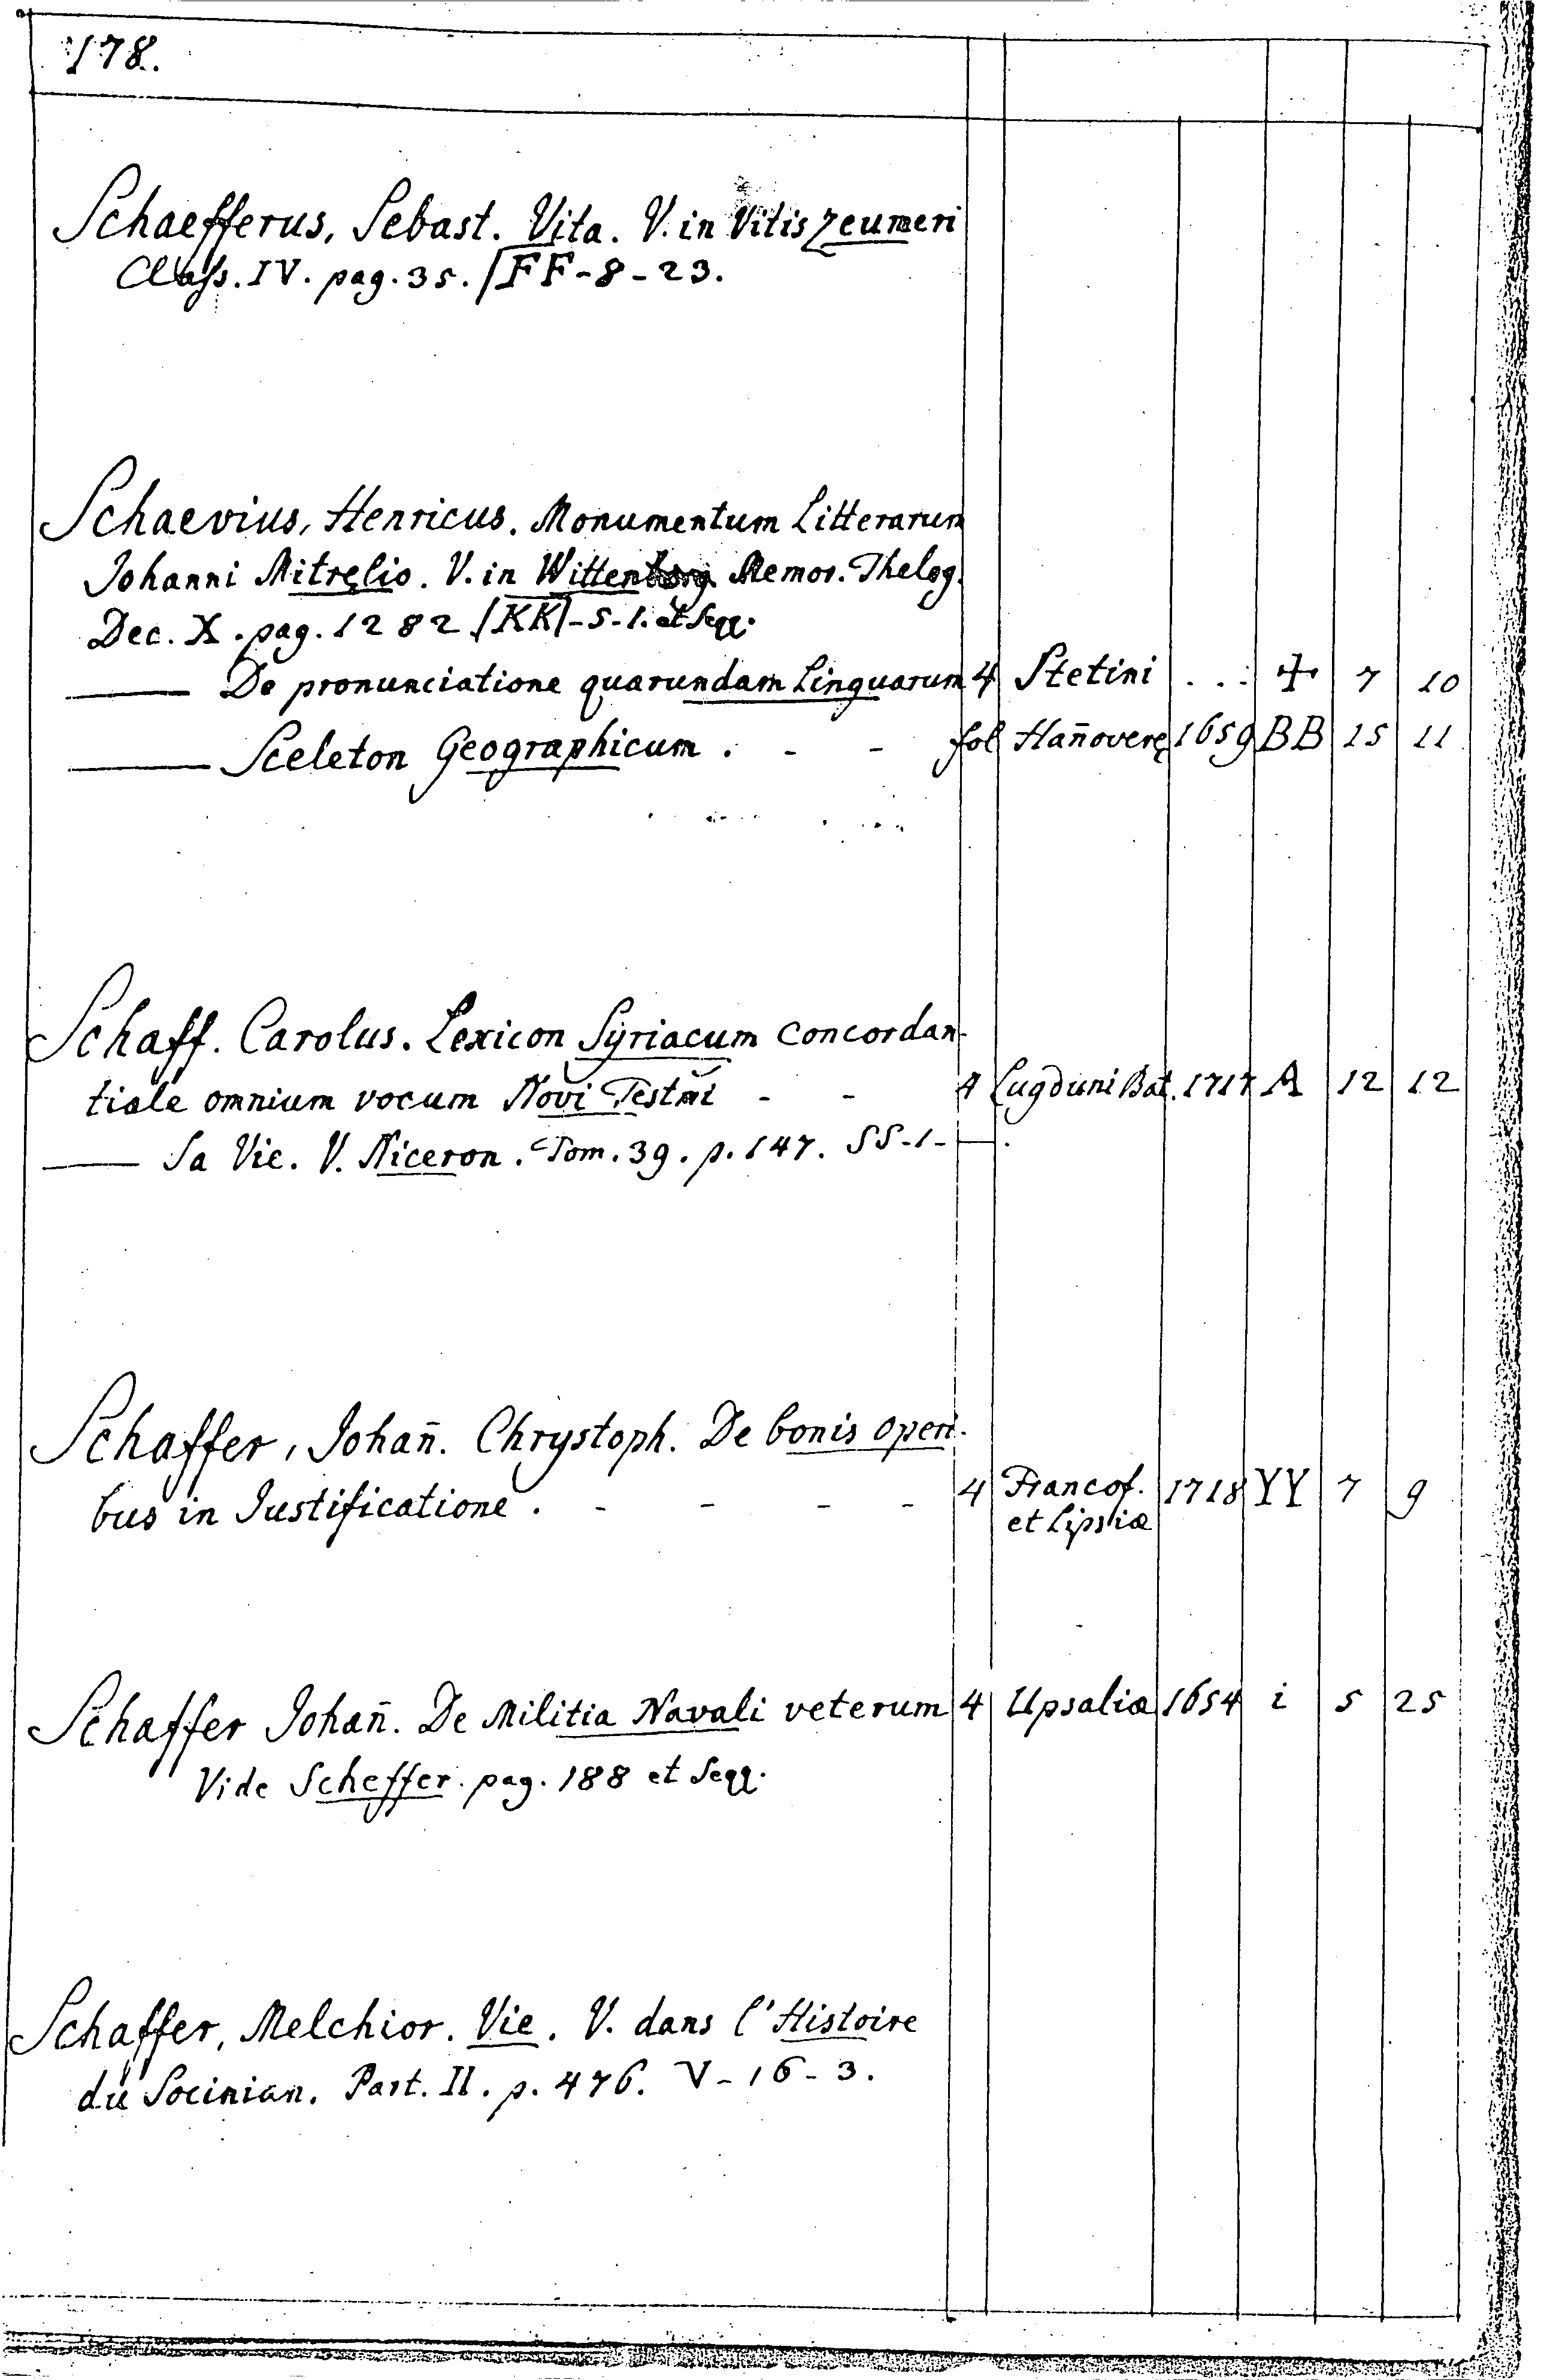 178.
Schaefferus, Sebast. Vita. V. in Vitis Zeumeri
Class. IV. pag. 35. /FF-8-23.
Schaevius, Henricus. Monumentum Litterarum
Johanni Mitręlio. V. in Wittenberg Memor. Thelog.
Dec. X. pag. 1282 /KK/-5-1. et Seqq.
—— De pronunciatione quarundam Linguarum 4 Stetini ... ☩ 7 10
—— Sceleton Geographicum . - - fol Hañoverę 1659 BB 15 11
Schaff. Carolus. Lexicon Syriacum concordan-
tiale omnium vocum Novi Testmi - - 4 Lugduni Bat. 1717 A 12 12
—— Sa Vie. V. Niceron. Tom. 39. p. 147. SS-1- — .
Schaffer, Johañ. Chrystoph. De bonis operi-
bus in Justificatione . - - - - 4 Francof. 1718 YY 7 9
et Lipsiæ
Schaffer Johañ. De Militia Navali veterum 4 Upsaliæ 1654 i 5 25
Vide Scheffer. pag. 188 et Seqq.
Schaffer, Melchior. Vie. V. dans l'Histoire
du Socinian. Part. II. p. 476. V-16-3.